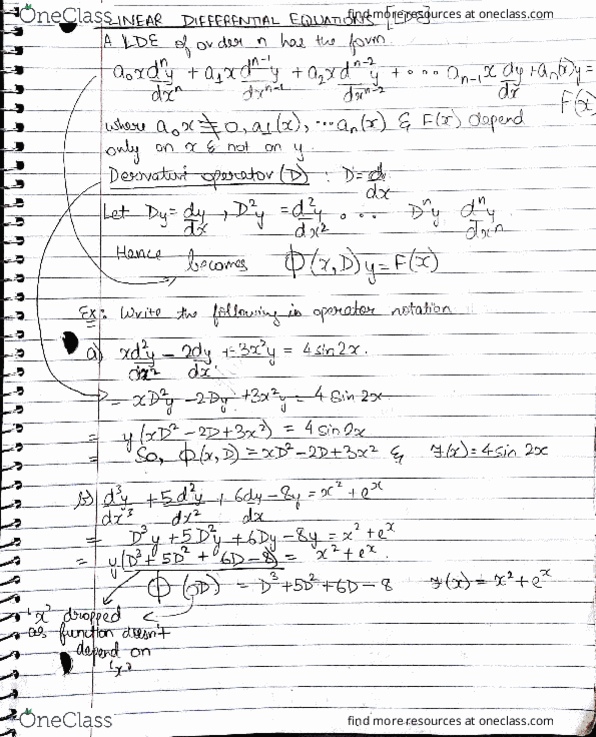 OneClass
find more resources at oneclass.com
LINEAR DIFFERENTIAL EQUATIONS
A LDE of order n has the form
a₀x dⁿy/dxⁿ + a₁x dⁿ⁻¹y/dxⁿ⁻¹ + a₂x dⁿ⁻²y/dxⁿ⁻² + ... aₙ₋₁ x dy/dx + aₙ(x)y =
F(x)
where a₀x ≠ 0, a₁(x), ... aₙ(x) & F(x) depend
only on x & not on y.
Derivative operator (D) : D = d/dx
Let Dy = dy/dx , D²y = d²y/dx² ... Dⁿy dⁿy/dxⁿ
Hence becomes Φ(x,D)y = F(x)
Ex: Write the following in operator notation
a) xd²y/dx² - 2dy/dx + 3x²y = 4 sin2x.
= xD²y - 2Dy + 3x²y = 4 Sin 2x
= y(xD² - 2D + 3x²) = 4 sin 2x
= So, Φ(x,D) = xD² - 2D + 3x² & F(x) = 4 sin 2x
b) d³y/dx³ + 5d²y/dx² + 6dy/dx - 8y = x² + eˣ
= D³y + 5D²y + 6Dy - 8y = x² + eˣ
= y(D³ + 5D² + 6D - 8) = x² + eˣ.
Φ(D) = D³ + 5D² + 6D - 8 F(x) = x² + eˣ
'x' dropped
as function doesn't
depend on
'x'
OneClass
find more resources at oneclass.com